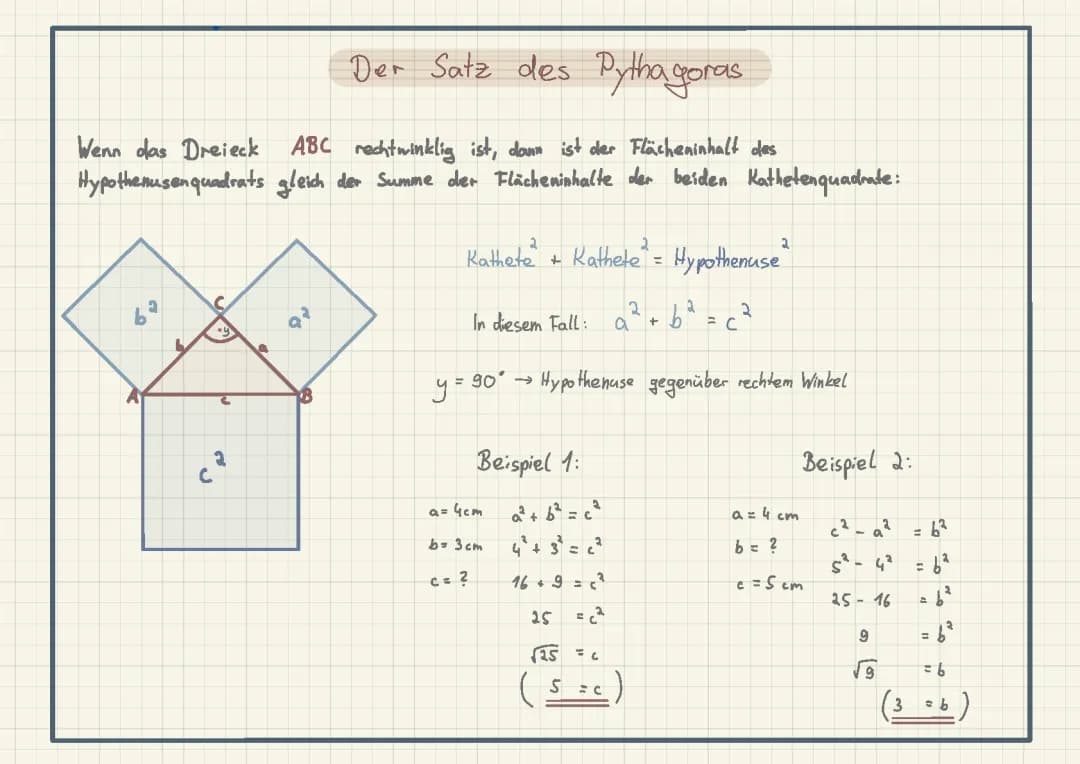 Der Satz des Pythagoras
Wenn das Dreieck ABC rechtwinklig ist, dann ist der Flächeninhalt des
Hypothenusenquadrats gleich der Summe der Flächeninhalte der beiden Kathetenquadrate:
Kathete² + Kathete² = Hypothenuse²
In diesem Fall: a² + b² = c²
y = 90° → Hypothenuse gegenüber rechtem Winkel
b²
a²
C
y
b
a
A
c
B
c²
Beispiel 1:
a = 4cm a² + b² = c²
b = 3cm 4² + 3² = c²
c = ? 16 + 9 = c²
25 = c²
√25 = c
( 5 = c )
Beispiel 2:
a = 4 cm
b = ?
c = 5 cm
c² - a² = b²
5² - 4² = b²
25 - 16 = b²
9 = b²
√9 = b
( 3 = b )